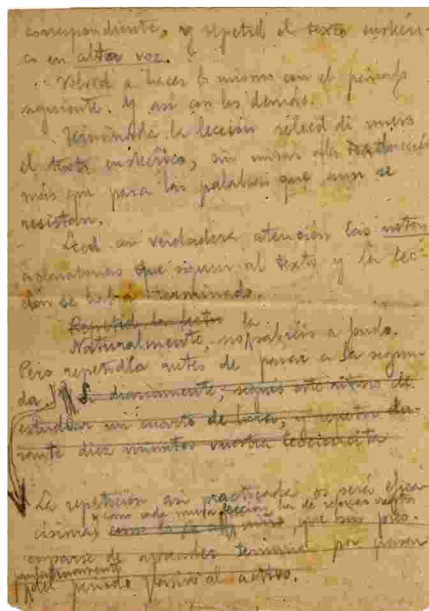 correspondiente, y repetid el texto euskéri-
co en alta voz.
Volved a hacer lo mismo con el párrafo
siguiente. Y así con los demás.
Terminada la lección releed de nuevo
el texto euskérico, sin mirar a la traducción
más que para las palabras que aun se
resistan.
Leed con verdadera atención las notas
aclaratorias que siguen al texto y la lec-
ción se habrá terminado.
Repetid la
Naturalmente, no la sabréis a fondo.
Pero repetidla antes de pasar a la segun-
da. Si diariamente, seguís este ritmo de
estudiar un cuarto de hora, y repetir du-
rante diez minutos vuestra leccioncita
La repetición así practicada os será efica-
císima, y como cada nueva lección ha de
que sin preo-
cuparse de aprender termina por pasar
del periodo pasivo al activo.